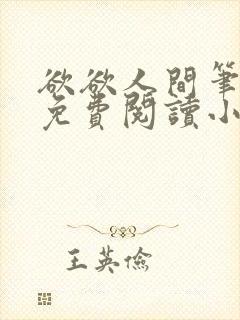 欲欲人間筆
免費閱讀小
王英儉